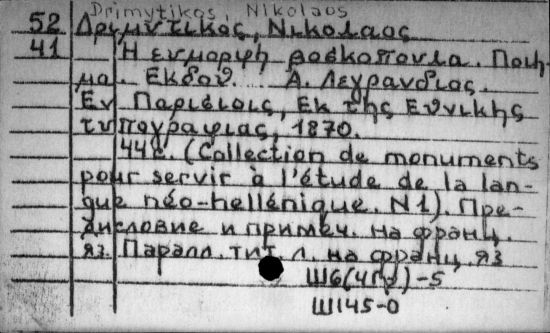 Drimytikos, Nikolaos
52 Δριμυτικος, Νικολαος
41 Η ευμορφη βοσκοπουλα. Ποιη-
μα. Εκδοϑ. Α. Λεγρανδιος.
Εν Παρισιοις, Εκ της Εϑνικης
τυπογραφιας, 1870.
44 с. (Collection de monuments
pour servir à l'étude de la lan-
gue néo-hellénique. N1). Пре-
дисловие и примеч. на франц.
яз. Паралл. тит. л. на франц. яз
Ш6(4Гр)-5
Ш145-0